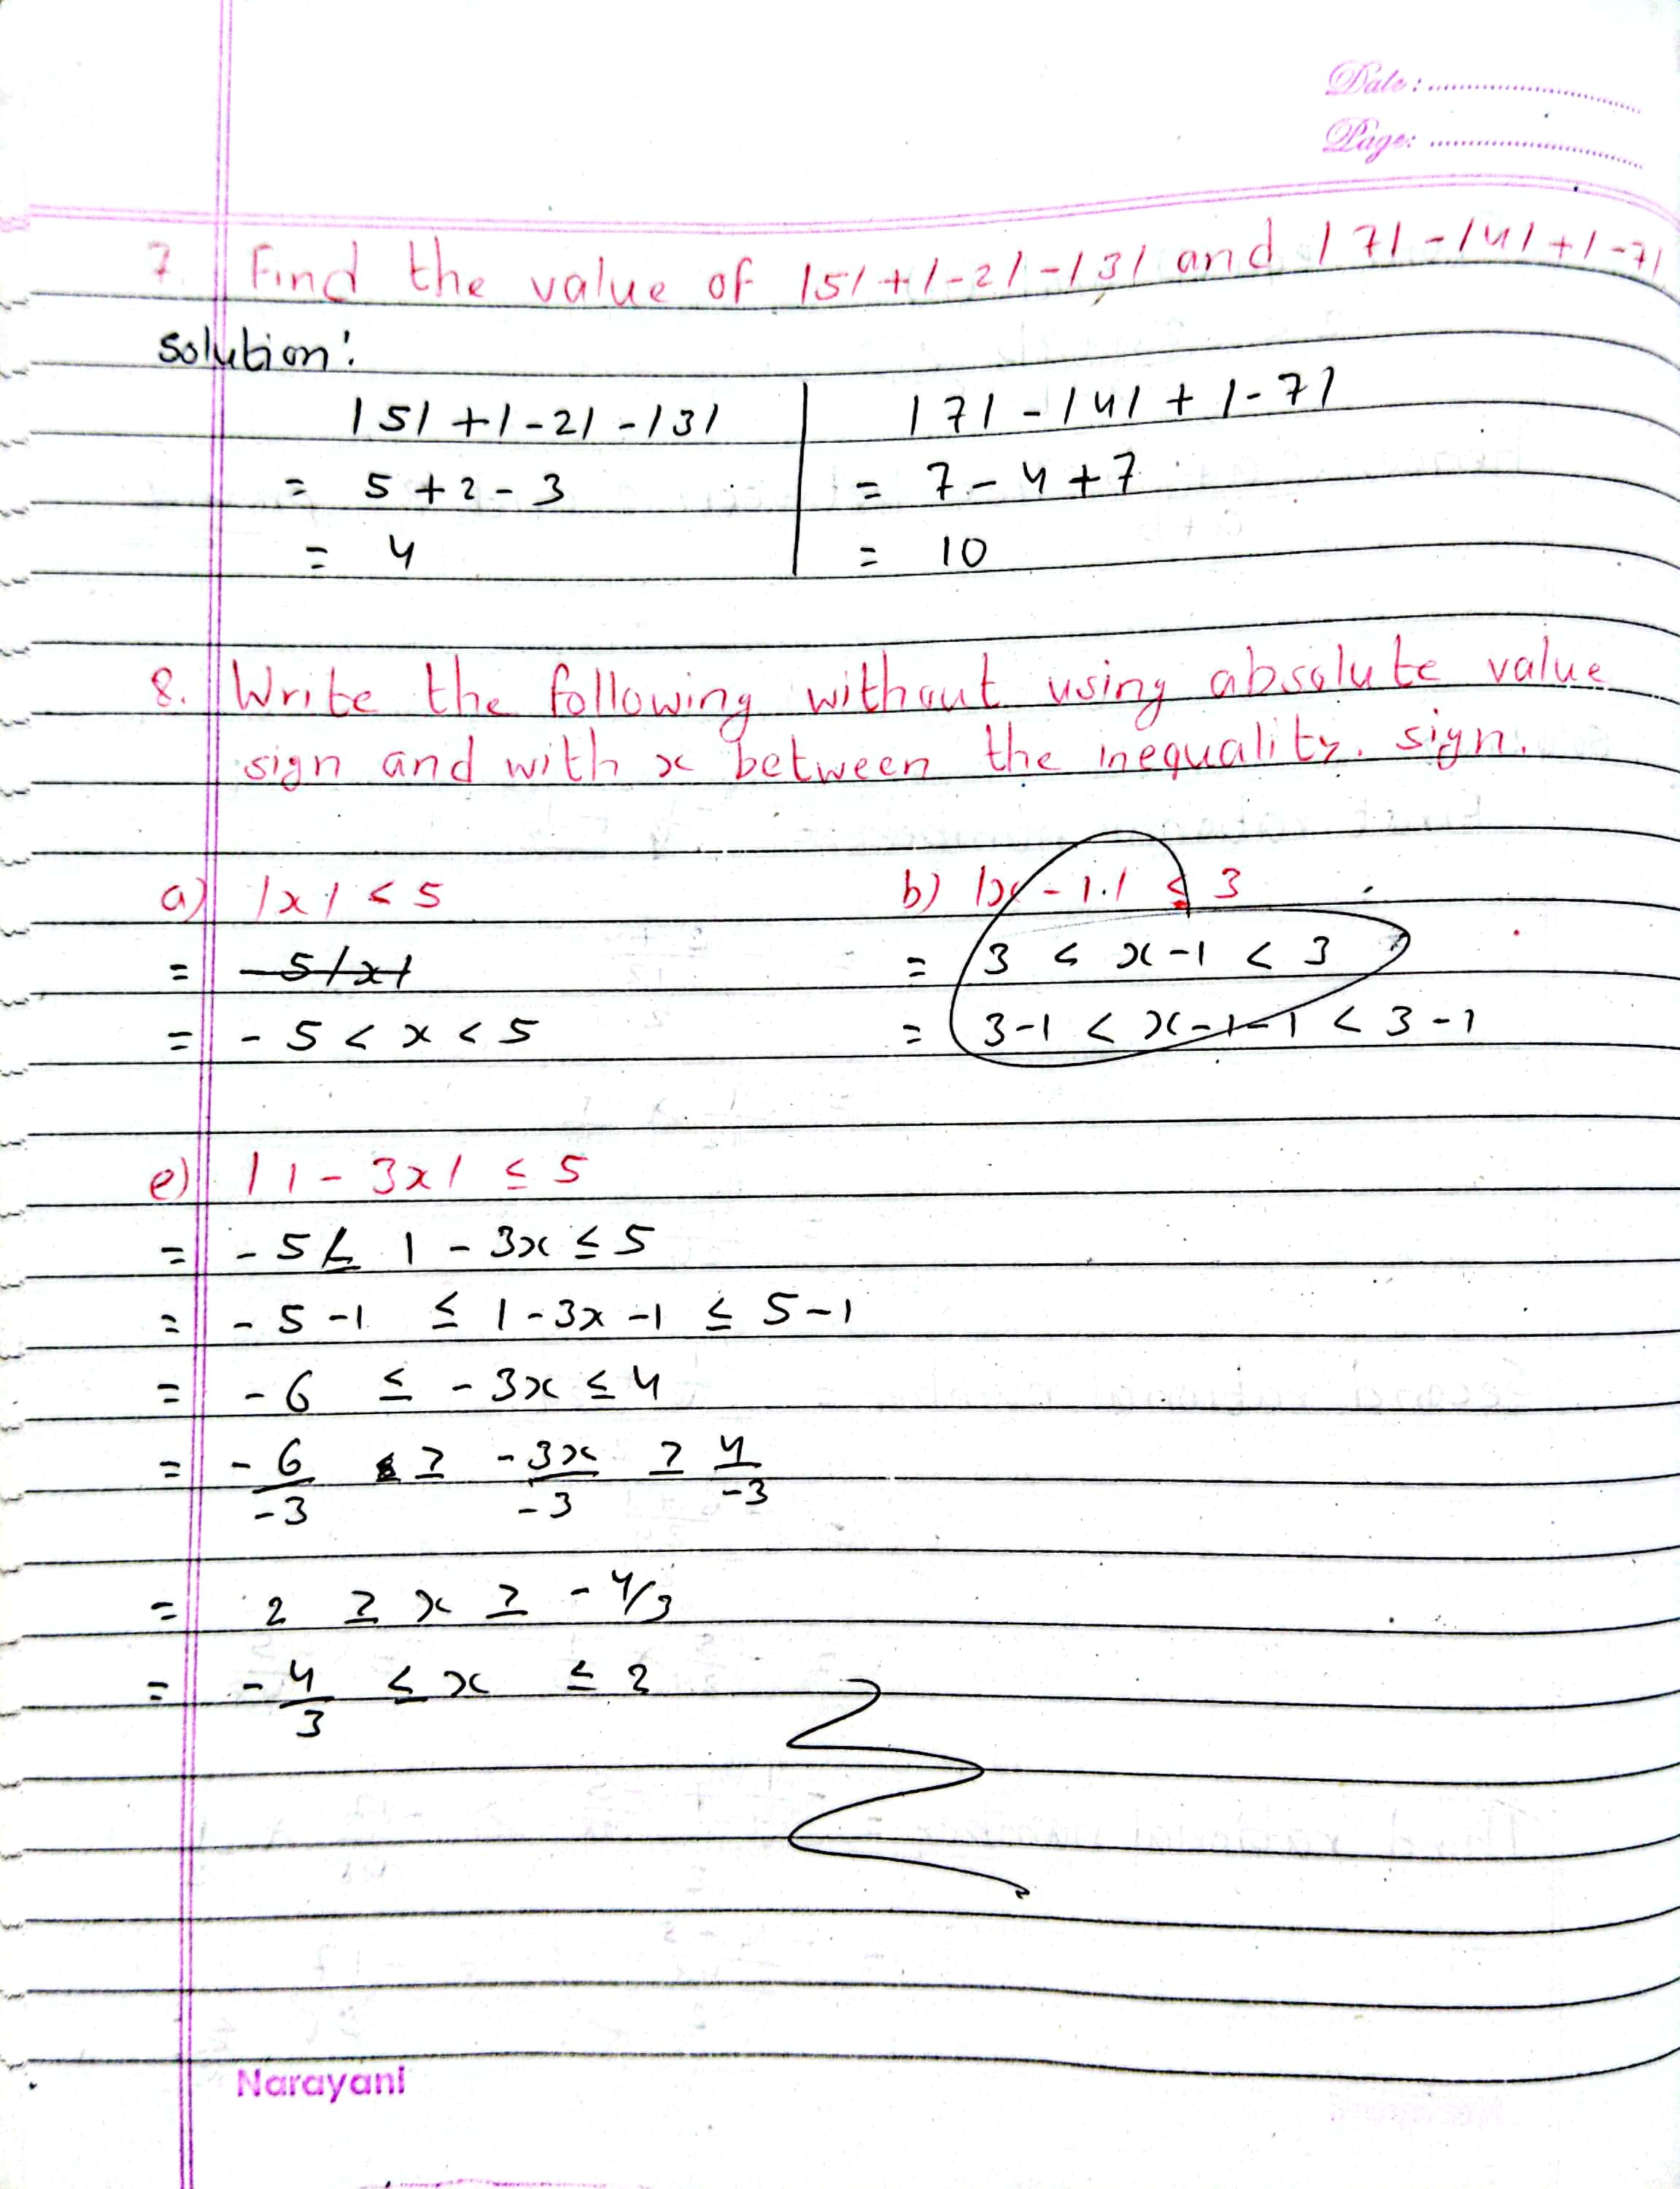 Date : ..........
Page: ..........
7. Find the value of |5| + |-2| - |3| and |7| - |4| + |-7|
solution:
|5| + |-2| - |3|
= 5 + 2 - 3
= 4
|7| - |4| + |-7|
= 7 - 4 + 7
= 10
8. Write the following without using absolute value
sign and with x between the inequality. sign.
a) |x| < 5
= - 5 |x|
= - 5 < x < 5
b) |x - 1.| ≤ 3
= 3 < x - 1 < 3
= 3-1 < x-1-1 < 3-1
e) |1 - 3x| ≤ 5
= - 5 ≤ 1 - 3x ≤ 5
= - 5 - 1 ≤ 1 - 3x - 1 ≤ 5 - 1
= - 6 ≤ - 3x ≤ 4
= -6/-3 ≥ -3x/-3 ≥ 4/-3
= 2 ≥ x ≥ - 4/3
= - 4/3 ≤ x ≤ 2
Narayani